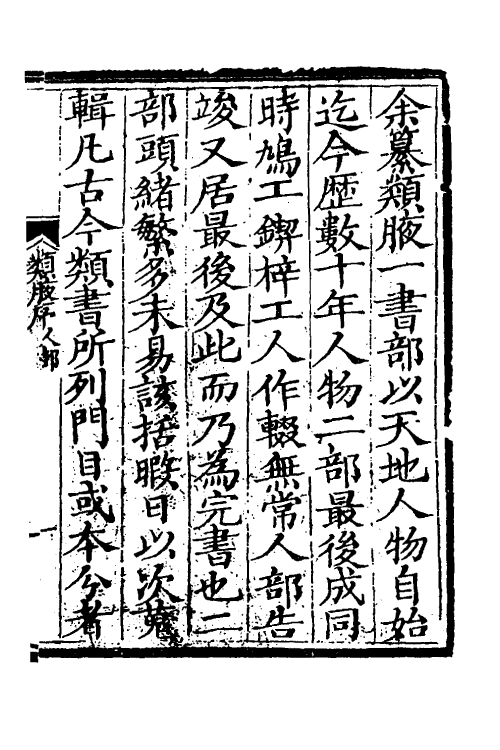 余纂類腋一書部以天地人物自始
迄今歷數十年人物二部最後成同
時鳩工鍥梓工人作輟無常人部告
竣又居最後及此而乃為完書也二
部頭緒繁多未易該括暇日以次蒐
輯凡古今類書所列門目或本分者
類腋序 人部